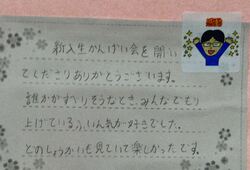 新入生かんげい会を開い
てくださりありがとうございます。
誰かがすべりそうなとき、みんなでもり
上げているふいん気が好きでした。
どのしょうかいも見ていて楽しかったです。